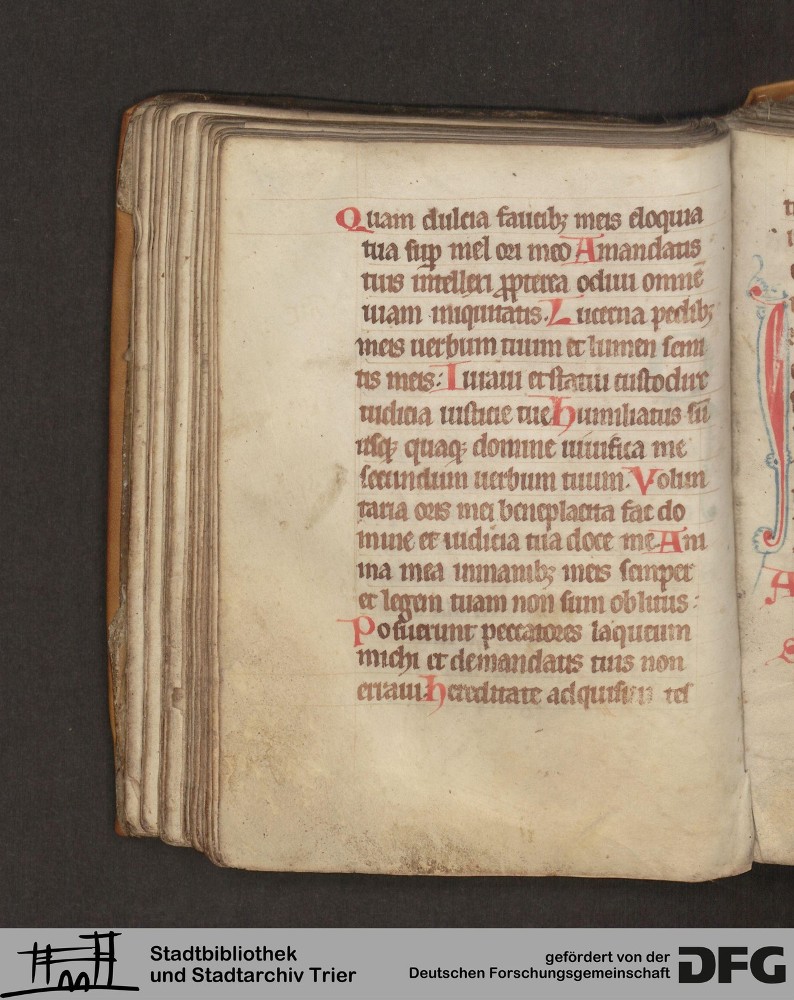 Quam dulcia faucibꝫ meis eloquia
tua suꝑ mel ori meo Amandatis
tuis intellexi ꝓpterea odiui omnē
uiam iniquitatis. Lucerna pedibꝫ
meis uerbum tuum et lumen semi
tis meis: Iuraui et statui custodire
iudicia iusticie tue humiliatus sū
usqꝫ quaqꝫ domine uiuifica me
secundum uerbum tuum. Volun
taria oris mei beneplacita fac do
mine et iudicia tua doce me Ani
ma mea inmanibꝫ meis semper
et legem tuam non sum oblitus:
Posuerunt peccatores laqueum
michi et demandatis tuis non
erraui: hereditate adquisiui tes
Stadtbibliothek
und Stadtarchiv Trier
gefördert von der
Deutschen Forschungsgemeinschaft
DFG